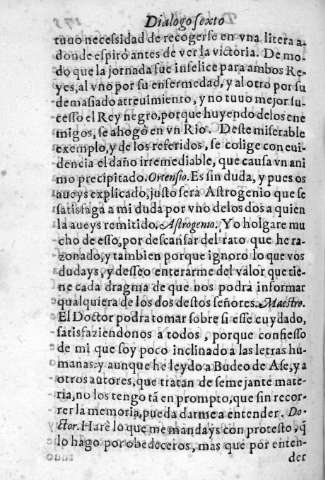 Dialogo sexto
tuuo necessidad de recogerse en vna litera a
donde espiró antes de ver la victoria. De mo-
do que la jornada fue infelice para ambos Re-
yes, al vno por su enfermedad, y al otro por su
demasiado atreuimiento, y no tuuo mejor su-
cesso el Rey negro, porque huyendo de los ene
migos, se ahogò en vn Rio. Deste miserable
exemplo, y de los referidos, se colige con eui-
dencia el daño irremediable, que causa vn ani
mo precipitado. Ortensio. Es sin duda, y pues os
aueys explicado, justo serà Astrogenio que se
satisfaga a mi duda por vno de los dos a quien
la aueys remitido. Astrogenio. Yo holgare mu
cho de esso, por descansar del rato que he ra-
zonado, y tambien porque ignoro lo que vos
dudays, y desseo enterarme del valor que tie-
ne cada dragma de que nos podra informar
qualquiera de los dos destos señores. Maestro.
El Doctor podra tomar sobre si esse cuydado,
satisfaziendonos a todos, porque confiesso
de mi que soy poco inclinado a las letras hu-
manas: y aunque he leydo a Budeo de Ase, y a
otros autores, que tratan de semejante mate-
ria, no los tengo tá en prompto, que sin recor-
rer la memoria, pueda darme a entender. Do-
ctor. Harè lo que me mandays con protesto, q̃
lo hago por obedeceros, mas que por enten-
der